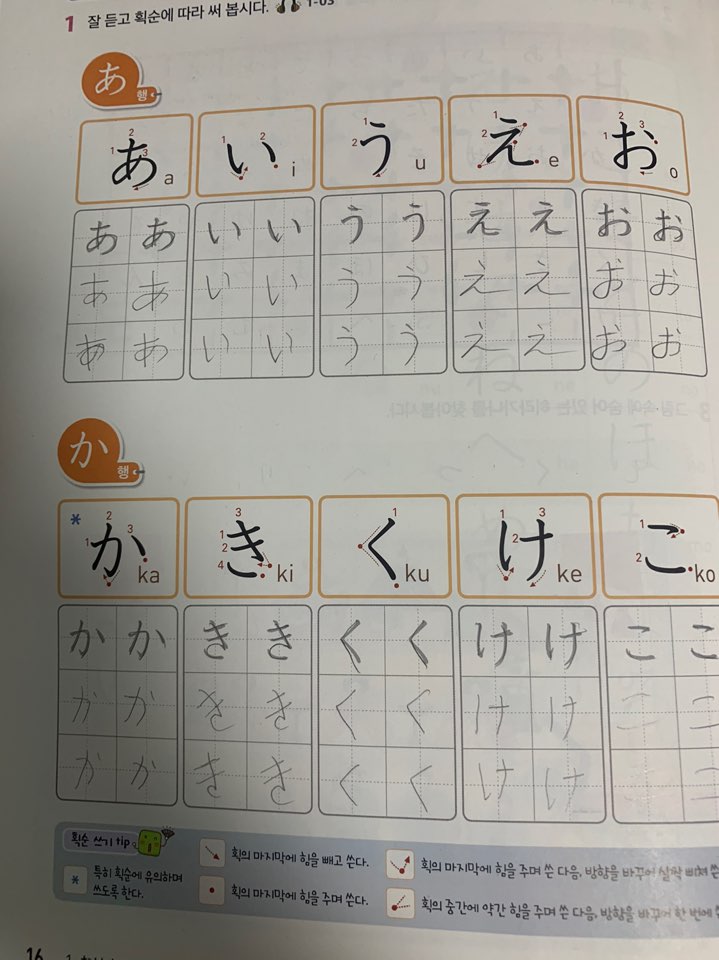 1 잘 듣고 획순에 따라 써 봅시다. 1-03
あ 행
あ a い i う u え e お o
ああ いい うう ええ おお
ああ いい うう ええ おお
ああ いい うう ええ おお
か 행
* か ka き ki く ku け ke こ ko
かか きき くく けけ ここ
かか きき くく けけ ここ
かか きき くく けけ ここ
획순 쓰기 tip
* 특히 획순에 유의하며 쓰도록 한다.
획의 마지막에 힘을 빼고 쓴다.
획의 마지막에 힘을 주며 쓴다.
획의 마지막에 힘을 주며 쓴 다음, 방향을 바꾸어 살짝 삐쳐
획의 중간에 약간 힘을 주며 쓴 다음, 방향을 바꾸어 한 번에
16